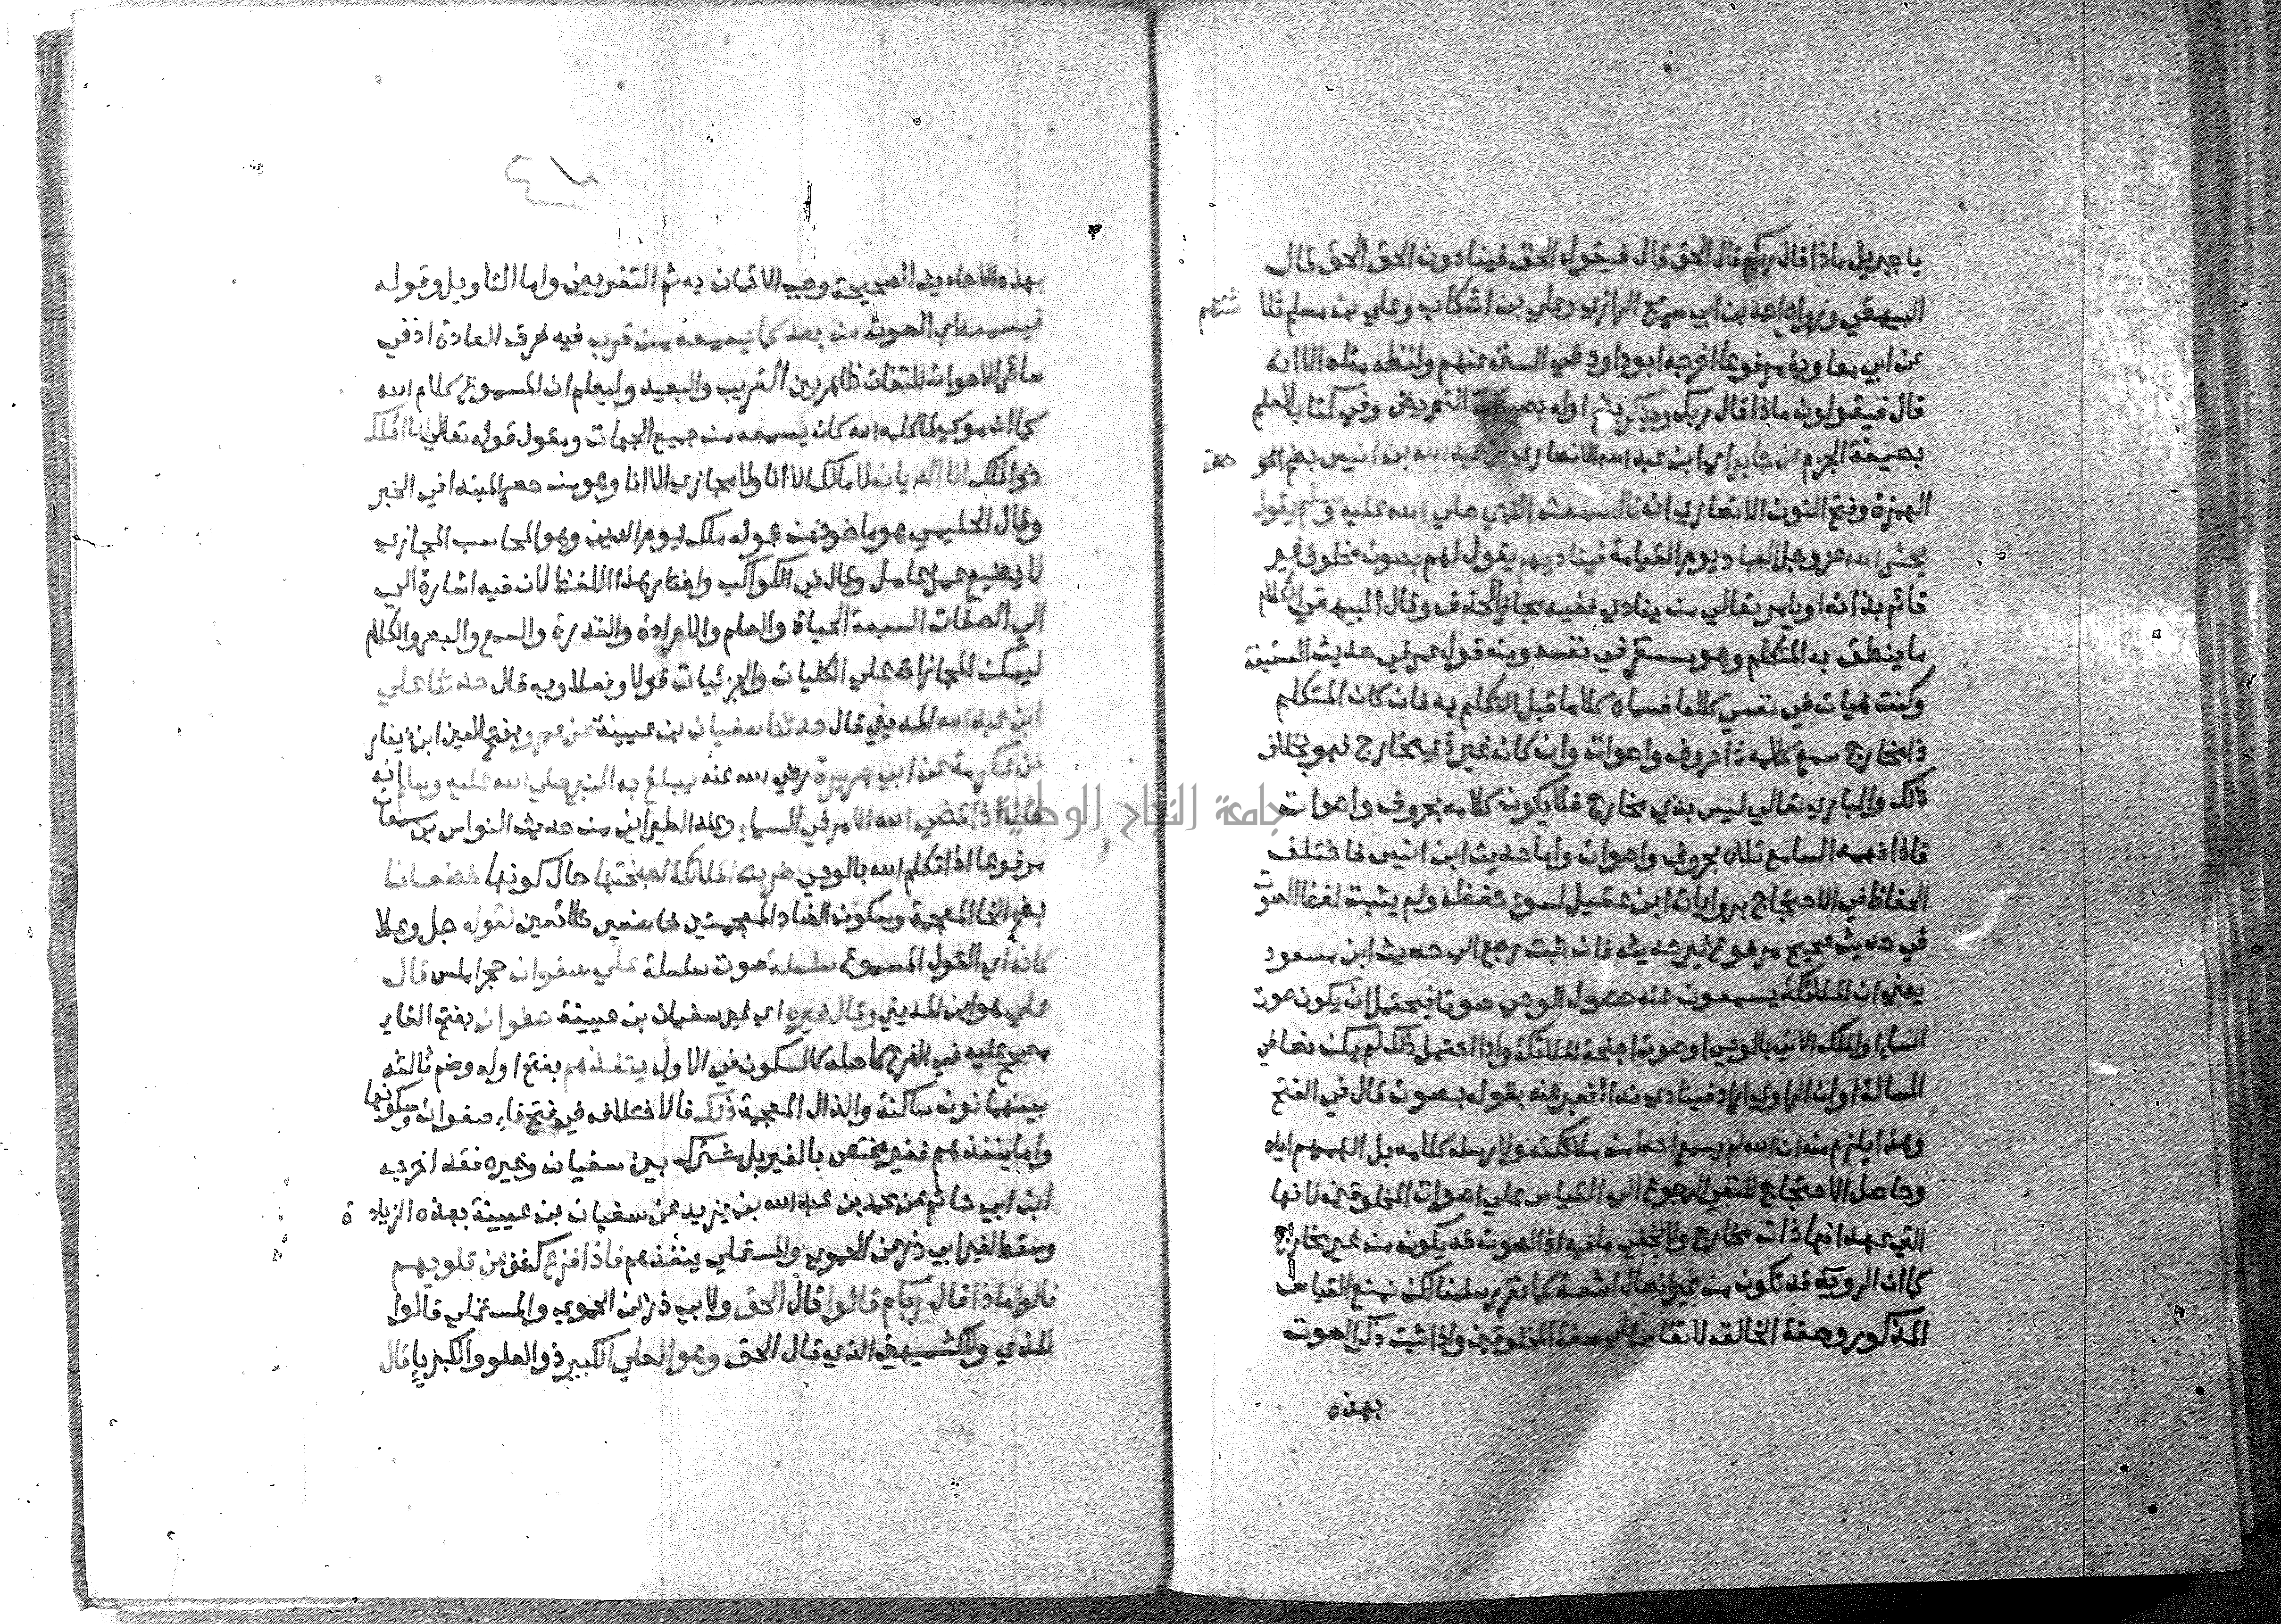 يا جبريل ماذا قال ربكم قال الحق قال فيقول الحق فينادون الحق الحق قال
البيهقي ورواه احمد بن ابي سريج الرازي وعلي بن اشكاب وعلي بن مسلم ثلا ثتهم
عن ابي معاوية مرفوعا اخرجه ابو داود في السنن عنهم ولفظه مثله الا انه
قال فيقولون ماذا قال ربك ويذكر بضم اوله بصيغة التمريض وفي كتاب العلم
بصيغة الجزم عن جابر اي ابن عبد الله الانصاري عن عبد الله بن انيس بضم
الهمزة وفتح النون الانصاري انه قال سمعت النبي صلي الله عليه وسلم يقول
يحشر الله عز وجل العباد يوم القيامة فيناديهم يقول لهم بصوت مخلوق غير
قائم بذاته او يامر تعالي من ينادي ففيه مجاز الحذف وقال البيهقي الكلام
ما ينطق به المتكلم وهو مستقر في نفسه ومنه قول عمر في حديث السقيفة
وكنت هيات في نفسي كلاما فسماه كلاما قبل التكلم به فان كان المتكلم
ذا مخارج سمع كلامه ذا حروف واصوات وان كان غير ذي مخارج فهو بخلاف
ذلك والباري تعالي ليس بذي مخارج فلا يكون كلامه بحروف واصوات
فاذا فهمه السامع تلاه بحروف واصوات واما حديث ابن انيس فاختلف
الحفاظ في الاحتجاج بروايات ابن عقيل لسوء حفظه ولم يثبت لفظ الصوت
في حديث صحيح مرفوع غير حديثه فان ثبت رجع الي حديث ابن مسعود
يعني ان الملائكة يسمعون عند حصول الوحي صوتا فيحتمل ان يكون صوت
السماء او الملك الاتي بالوحي او صوت اجنحة الملائكة واذا احتمل ذلك لم يكن نصا في
المسالة او ان الراوي اراد فينادي نداء فعبر عنه بقوله بصوت قال في الفتح
وهذا يلزم منه ان الله لم يسمع احدا من ملائكته ولا رسله كلامه بل الهمهم اياه
وحاصل الاحتجاج للنفي الرجوع الي القياس علي اصوات المخلوقين لانها
التي عهد انها ذات مخارج ولا يخفي ما فيه اذ الصوت قد يكون من غير مخارج
كما ان الروية قد تكون من غير اتصال اشعة كما تقرر سلمنا لكن نمنع القياس
المذكور وصفة الخالق لا تقاس علي صفة المخلوقين واذا ثبت ذكر الصوت
بهذه
بهذه الاحاديث الصحيحة وجب الايمان به ثم التفويض واما التاويل وقوله
فيسمعه اي الصوت من بعد كما يسمعه من قرب فيه خرق العادة اذ في
سائر الاصوات التفاوت ظاهر بين القريب والبعيد وليعلم ان المسموع كلام الله
كما ان موسي لما كلمه الله كان يسمعه من جميع الجهات ومقول قوله تعالي انا الملك
ذو الملك انا الديان لا مالك الا انا ولا مجازي الا انا وهو من حصر المبتدا في الخبر
وقال الحليمي هو ماخوذ من قوله ملك يوم الدين وهو المحاسب المجازي
لا يضيع عمل عامل وقال في الكواكب واختار هذا اللفظ لان فيه اشارة الي
الي الصفات السبعة الحياة والعلم والارادة والقدرة والسمع والبصر والكلام
ليمكن المجازاة علي الكليات والجزئيات قولا وفعلا وبه قال حدثنا علي
ابن عبد الله المديني قال حدثنا سفيان بن عيينة عن عمرو بفتح العين ابن دينار
عن عكرمة عن ابي هريرة رضي الله عنه يبلغ به النبي صلي الله عليه وسلم انه
قال اذا قضي الله الامر في السماء وعند الطبراني من حديث النواس بن سمعان
مرفوعا اذا تكلم الله بالوحي ضربت الملائكة اجنحتها حال كونها خضعانا
بضم الخا المعجمة وسكون الضاد المعجمتين خاضعين طائعين لقوله جل وعلا
كانه اي القول المسموع سلسلة صوت سلسلة علي صفوان حجر املس قال
علي هو ابن المديني وقال غيره اي غير سفيان بن عيينة صفوان بفتح الفاء
مصحح عليه في الفرع كاصله كالسكون في الاول ينفذهم بفتح اوله وضم ثالثه
بينهما نون ساكنة والذال المعجمة ذلك فالاختلاف في فتح فاء صفوان وسكونها
واما ينفذهم فغير مختص بالغير بل مشترك بين سفيان وغيره فقد اخرجه
ابن ابي حاتم عن محمد بن عبد الله بن يزيد عن سفيان بن عيينة بهذه الزيادة
وسقط لغير ابي ذر عن الحموي والمستملي ينفذهم فاذا فزع كشف عن قلوبهم
قالوا ماذا قال ربكم قالوا قال الحق ولابي ذر عن الحموي والمستملي قالوا
للذي وللكشميهني الذي قال الحق وهو العلي الكبير ذو العلو والكبرياء قال
جامعة النجاح الوطنية